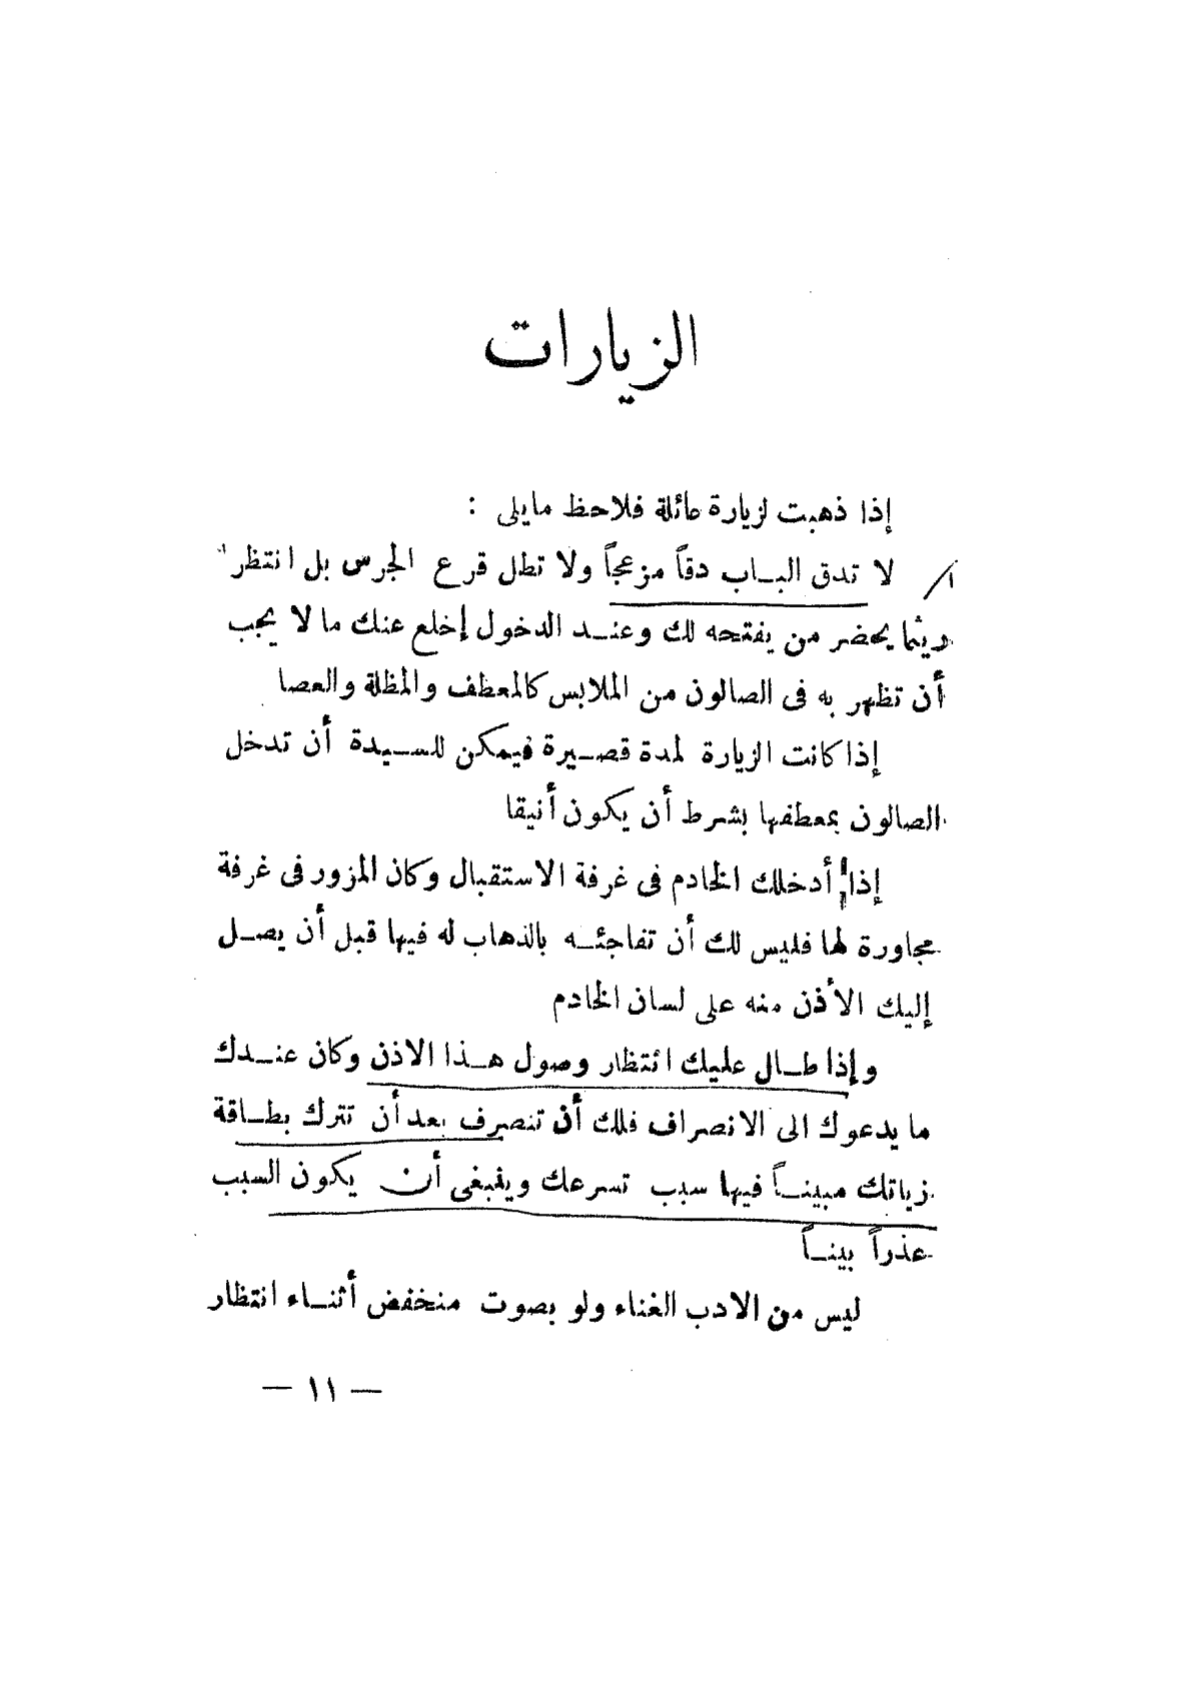 الزيارات
إذا ذهبت لزيارة عائلة فلاحظ مايلى :
لا تدق البـاب دقاً مزعجاً ولا تطل قرع الجرس بل انتظر
ريثما يحضر من يفتحه لك وعنـد الدخول إخلع عنك ما لا يجب
أن تظهر به فى الصالون من الملابس كالمعطف والمظلة والعصا
إذا كانت الزيارة لمدة قصـيرة فيمكن للسـيدة أن تدخل
الصالون بمعطفها بشرط أن يكون أنيقا
إذا أدخلك الخادم فى غرفة الاستقبال وكان المزور فى غرفة
مجاورة لها فليس لك أن تفاجئـه بالذهاب له فيها قبل أن يصـل
إليك الأذن منه على لسان الخادم
وإذا طـال عليك انتظار وصول هـذا الاذن وكان عنـدك
ما يدعوك الى الانصراف فلك أن تنصرف بعد أن تترك بطـاقة
زياتك مبينـاً فيها سبب تسرعك وينبغى أن يكون السبب
عذراً بينـاً
ليس من الادب الغناء ولو بصوت منخفض أثنـاء انتظار
— ١١ —